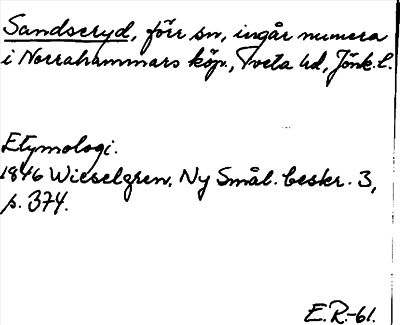 Sandseryd, förr sn, ingår numera
i Norrahammars köp., Tveta hd, Jönk. l.
Etymologi.
1846 Wieselgren, Ny Smål. beskr. 3,
s. 374.
E.R.-61.